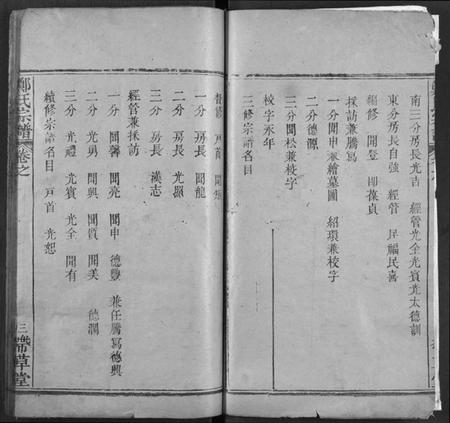 南三分房長光吉 經管光全光賓光太德訓
東分房長自強 經管 民福民喜
續修 開登 即葆貞
採訪兼謄寫
一分開申兼繪墓圖 紹瓊兼校字
二分德源
三分開松兼校字
校字永年
三修宗譜名目
督修 戶首
一分 房長 開龍
二分 房長 光照
三分 房長 漢志
經管兼採訪
一分 開馨 開亮 開申 德豐 兼任謄寫德興
二分 光勇 開興 開質 開美 德潤
三分 光禮 光賓 光全 開有
續修宗譜名目 戶首 光恕
鄭氏宗譜 卷之
三
草堂